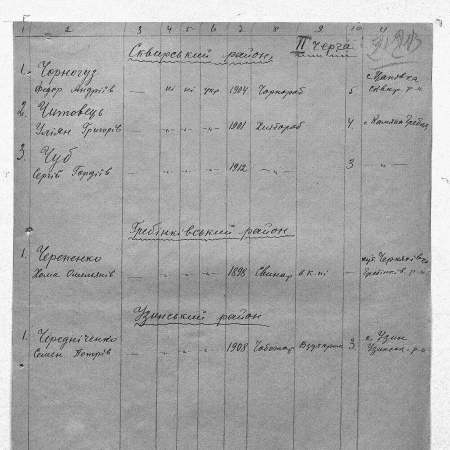 1 2 3 4 5 6 7 8 9 10 11
Сквирський район. II черга
1. Чорногуз
Федір Андріїв — ні ні укр. 1904 Чорнороб 5 с. Сквир. р-н.
2. Читовець
Уліян Григорів — 1901 Хлібороб 4. с. Кам'яна Гребля
3. Чуб
Сергій Гордіїв — 1912 3
Гребінківський район
1. Черепенко
Хома Омелянів — 1898 Свинар — хут. Гребінків. р-н.
Узинський район
1. Чередніченко
Семен Петрів — 1908 3 с. Узин
Узинськ. р-н